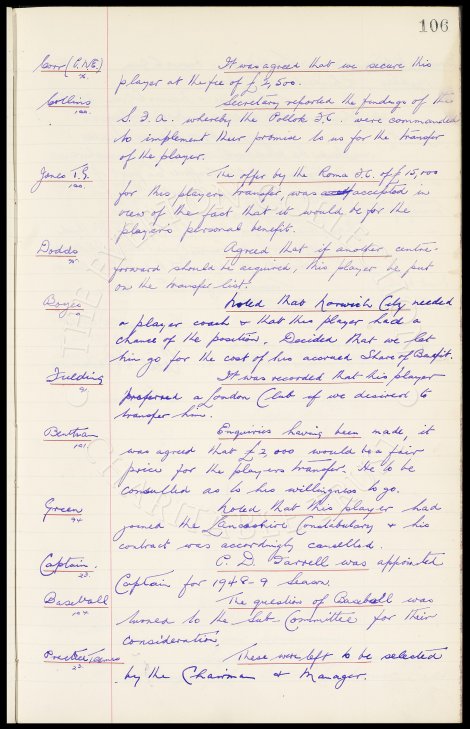 106
Corr (P.N.E.) It was agreed that we secure this
player at the fee of £
Collins Secretary reported the findings of the
S.F.A. whereby the Pollok F.C. were commanded
to implement their promise to us for the transfer
of the player.
Jones T.G. The offer by the Roma F.C. of £15,000
for this players transfer, was accepted in
view of the fact that it would be for the
player's personal benefit.
Dodds Agreed that if another centre-
forward should be acquired, this player be put
on the transfer list.
Boyes Noted that Norwich City needed
a player coach & that this player had a
chance of the position. Decided that we let
him go for the cost of his accrued Share of Benefit.
Fielding It was recorded that this player
preferred a London Club if we desired to
transfer him.
Bentham Enquiries having been made, it
was agreed that £2,000 would be a fair
price for the players transfer. He to be
consulted as to his willingness to go.
Green Noted that this player had
joined the Lancashire Constabulary & his
contract was accordingly cancelled.
Captain. P. D. Farrell was appointed
Captain for 1948-9 Season.
Baseball The question of Baseball was
turned to the Sub-Committee for their
consideration.
Practice Teams These were left to be selected
by the Chairman & Manager.